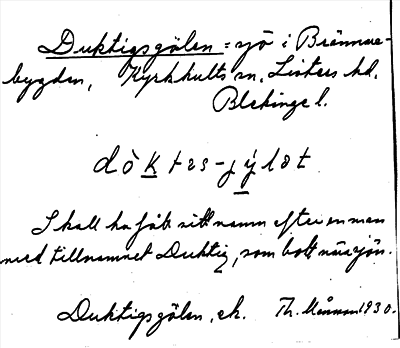 Duktigsgölen = sjö i Brännare-
bygden, Kyrkhults sn. Listers hd.
Blekinge l.
dòktəs-jýlət
Skall ha fått sitt namn efter en man
med tillnamnet Duktig, som bott nära sjön.
Duktigsgölen, ek. Th. 1930.